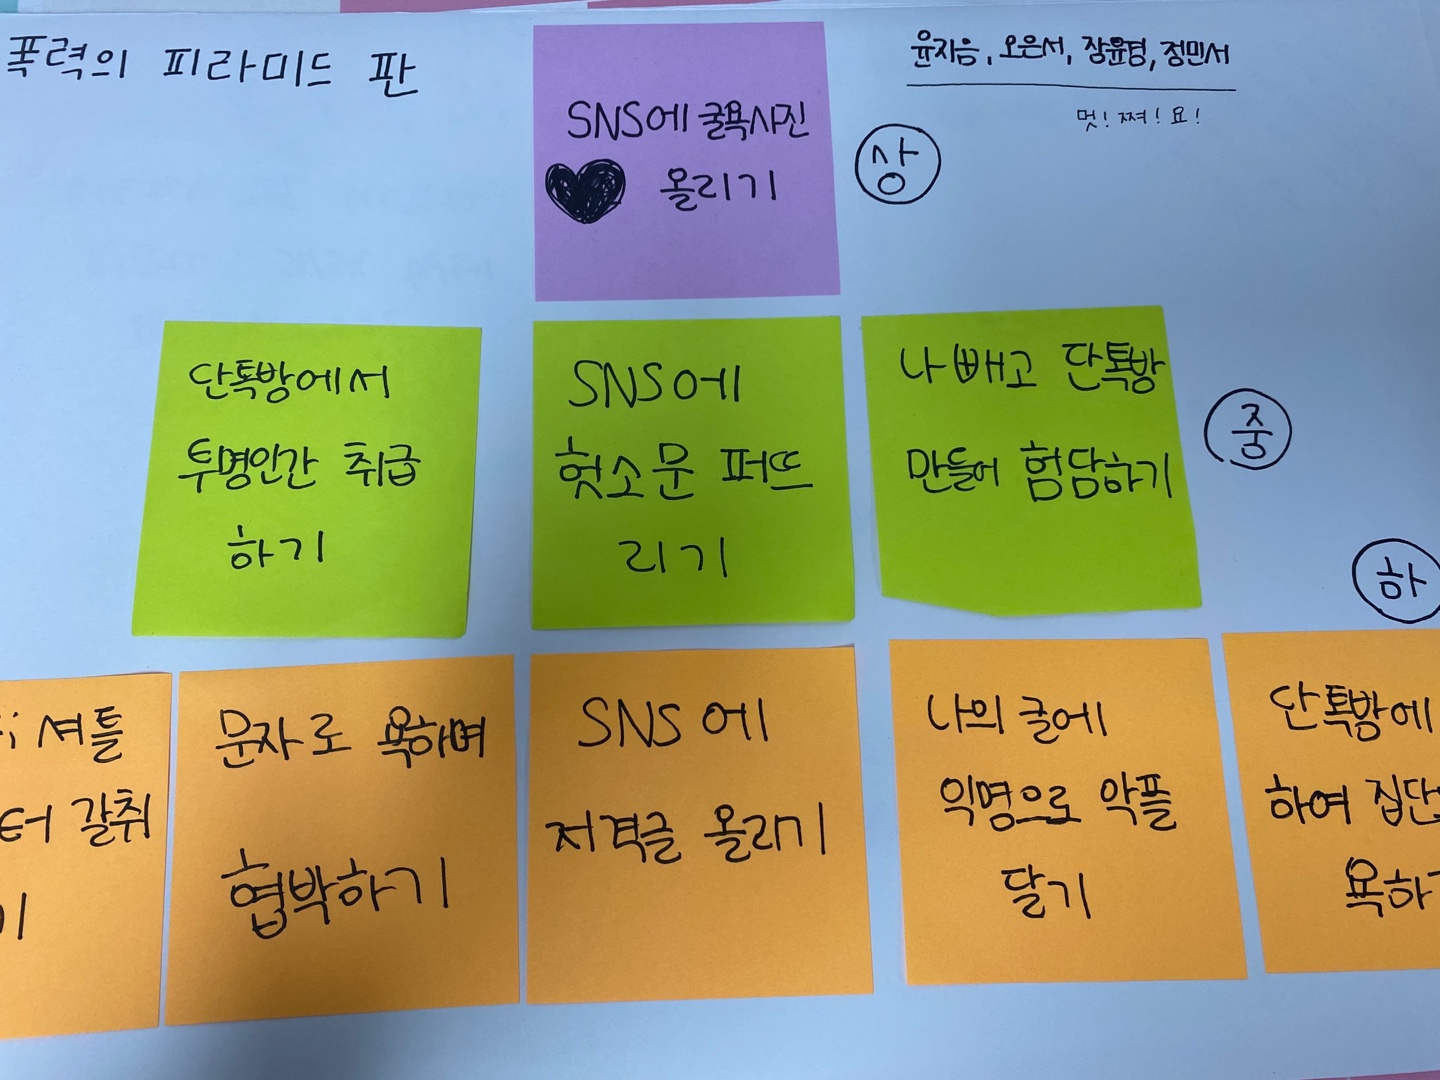 폭력의 피라미드 판
윤지음, 오은서, 장윤령, 정민서
멋! 쪄! 요!
SNS에 굴욕사진
올리기
상
단톡방에서
투명인간 취급
하기
SNS에
헛소문 퍼뜨
리기
나 빼고 단톡방
만들어 험담하기
중
하
셔틀
터 갈취
기
문자로 욕하며
협박하기
SNS에
저격글 올리기
나의 글에
익명으로 악플
달기
단톡방에
하여 집단
욕하